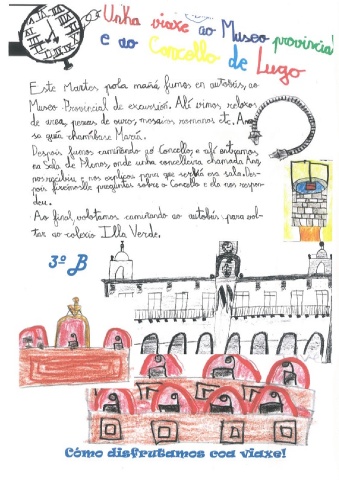 Unha viaxe ao Museo provincial
e ao Concello de Lugo
Este Martes pola mañá fumos en autobús, ao
Museo Provincial de excursión. Alí vimos, reloxos
de area, pezas de ouro, mosaicos romanos etc. A no-
sa guía chamábase María.
Despois fumos camiñando ao Concello, e alí entramos
na Sala de Plenos, onde unha concelleira chamada Ana,
nos recibiu e nos explicou para que servía esa sala. Des-
pois fixémoslle preguntas sobre o Concello e ela nos respon-
deu.
Ao final, volotamos camiñando ao autobús para vol-
tar ao colexio Illa Verde.
3º B
Cómo disfrutamos coa viaxe!